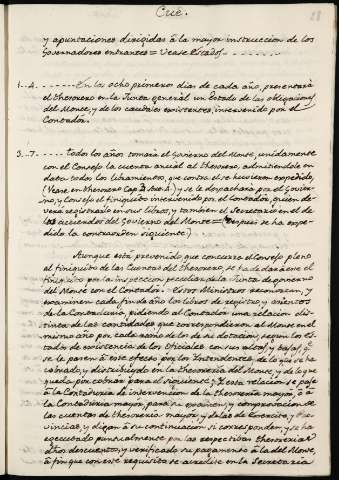 Cue.
28
y apuntaciones dirigidas à la mayor instruccion de los
Governadores entrantes = Vease Estados.
1..4. En los ocho primeros dias de cada año, presentará
el thesorero en la Junta general un Estado de las obligaciones
del Monte, y de los caudales existentes, intervenido por el
Contador.
3...7. Todos los años tomará el Govierno del Monte, unidamente
con el Consejo la cuenta anual al thesorero admitiendole en
data todos los libramientos, que contra el se huvieren expedido,
(Vease en thesorero Cap. ) y se le despachará por el Govier-
no, y Consejo el finiquito intervenido por el Contador, quien de-
verá registrarlo en sus libros, y tambien el Secretario en el de
los acuerdos del Govierno del Monte = (Despues se ha expe-
dido la contraorden siguiente)
Aunque está prevenido que concurra el Consejo pleno
al finiquito de las Cuentas del thesorero, se ha de dar este el
finiquito por la inspeccion peculiar de la Junta de govierno
del Monte con el Contador. Estos Ministros reconozcan, y
examinen cada fin de año los libros de registro y asientos
de la Contaduria, pidiendo al Contador una relacion dis-
tinta de las cantidades que correspondieron al Monte en el
mismo año por cada ramo de los de su dotacion, segun los Es-
tados de existencia de Oficiales con sus altas, y bajas, qe
se le pasen à este efecto por los Intendentes, de lo que se ha
cobrado, y distribuydo en la thesoreria del Monte, y de lo que
queda por cobrar para el siguiente; y esta relacion se pase
à la Contaduria de intervencion de la thesoreria mayor, ò à
la Contaduria mayor, para su examen, y comprovacion de
las cuentas de thesoreria mayor, y de las de Exercito, y Pro-
vincias, y digan à su continuacion si corresponden, y se ha
egecutado puntualmente por las respectivas thesorerias
dhos descuentos, y verificado su pagamento à la del Monte,
à fin que con este requisito se acredite en la Secretaria